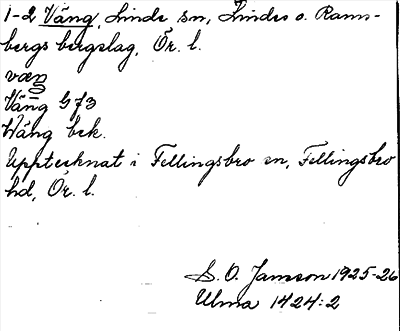 1-2 Väng, Linde sn, Lindes o. Rams-
bergs bergslag, Ör. l.
væŋ
Väng G f3
Wäng bek.
Upptecknat i Fellingsbro sn, Fellingsbro
hd, Ör. l.
S. O. Jansson 1925-26
Ulma 1424:2